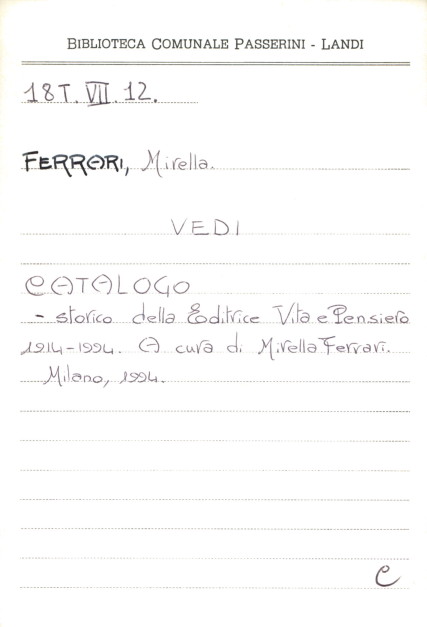 BIBLIOTECA COMUNALE PASSERINI - LANDI
18T. VII. 12.
FERRARI, Mirella.
VEDI
CATALOGO
- storico della Editrice Vita e Pensiero
1914-1994. A cura di Mirella Ferrari.
Milano, 1994.
C